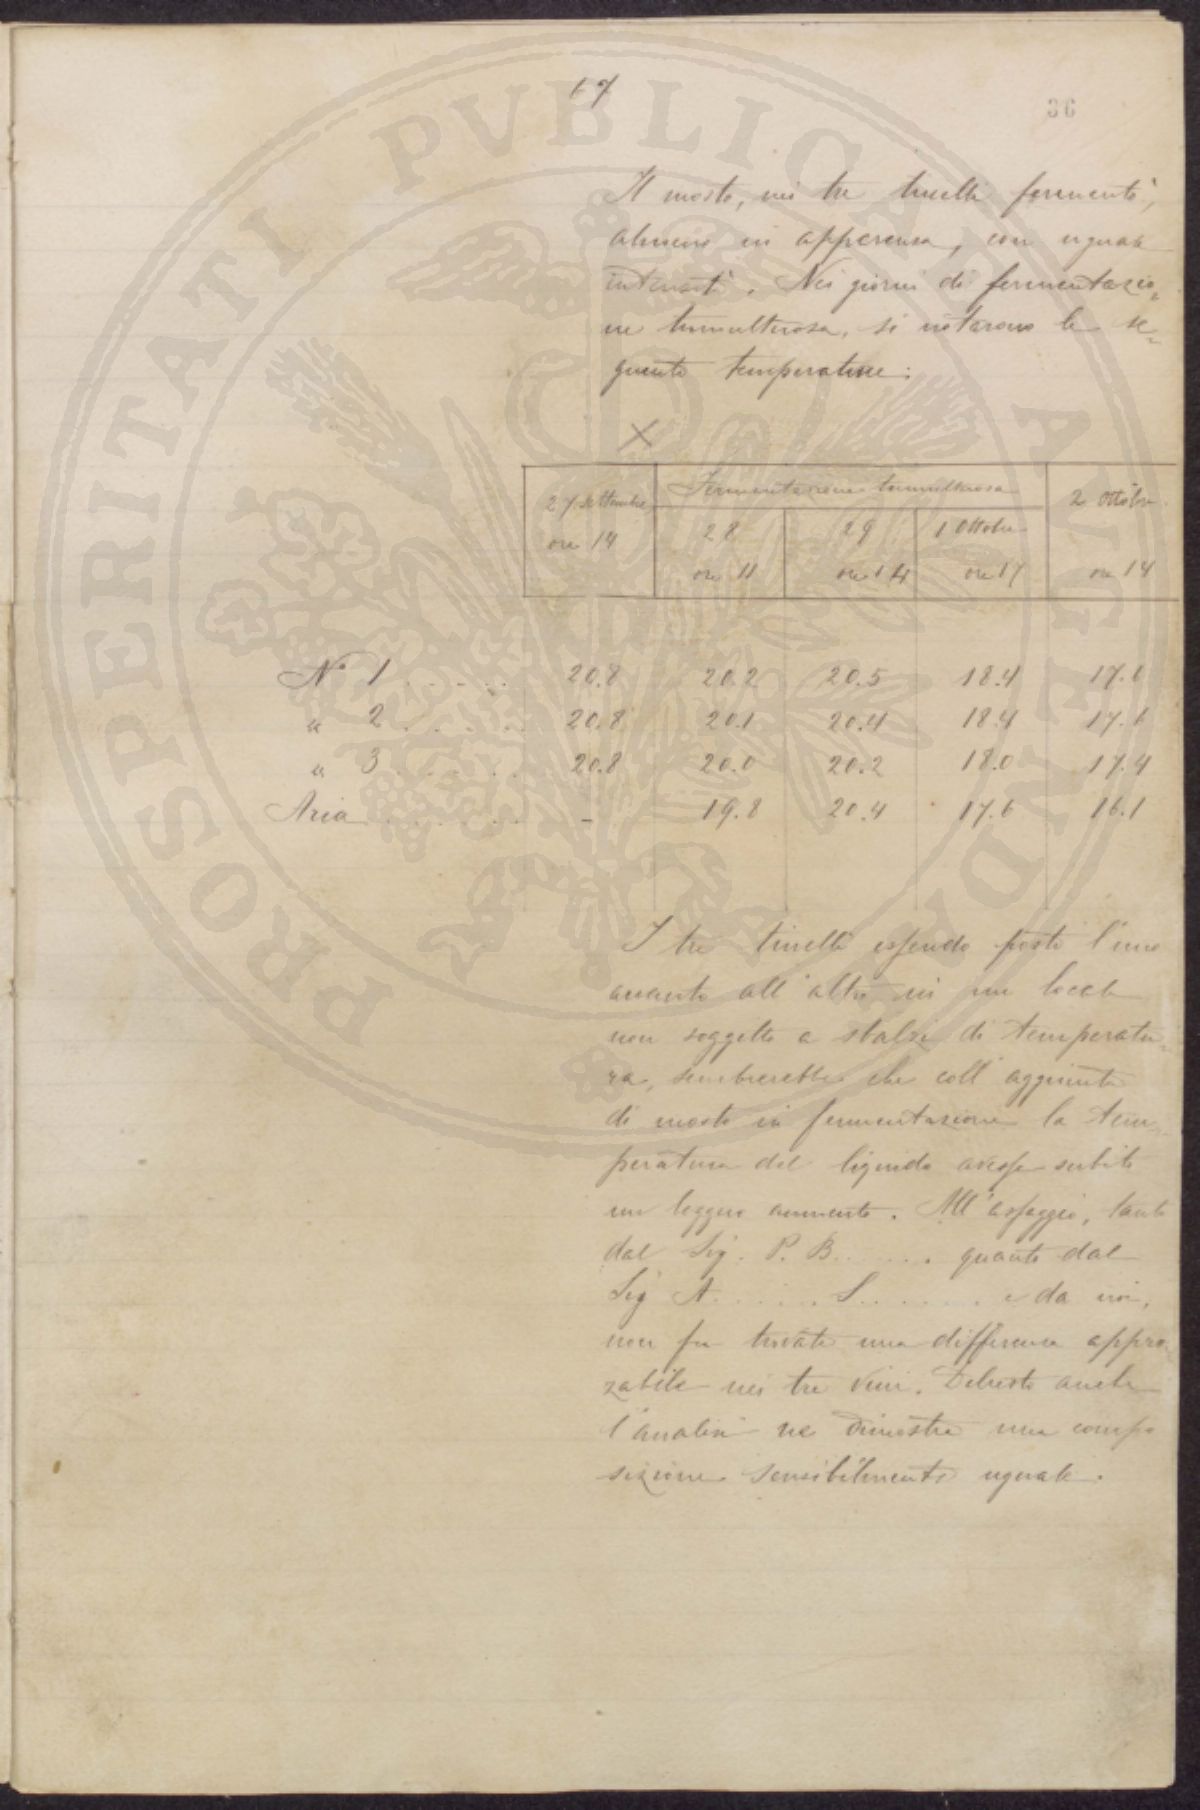 67
36
Il mosto, nei tre tinelli fermentò,
almeno in apparenza, con uguale
intensità. Nei giorni di fermentazio=
ne tumultuosa, si notarono le se=
guenti temperature:
X
27 settembre ore 14
Fermentazione tumultuosa
28 ore 11
29 ore 14
1 Ottobre ore 17
2 Ottobre ore 14
N° 1 . . . . . 20.8 20.2 20.5 18.4 17.6
" 2 . . . . . 20.8 20.1 20.4 18.4 17.6
" 3 . . . . . 20.8 20.0 20.2 18.0 17.4
Aria . . . . . - 19.8 20.4 17.6 16.1
I tre tinelli essendo posti l'uno
accanto all'altro in un locale
non soggetto a sbalzi di temperatu=
ra, sembrerebbe che coll'aggiunta
di mosto in fermentazione la tem=
peratura del liquido avesse subito
un leggero aumento. All'assaggio, tanto
dal Sig. P. B. . . . . . quanto dal
Sig A. . . . . . S. . . . . . . e da noi,
non fu trovata una differenza appre
zabile nei tre vini. Delresto anche
l'analisi ne dimostra una compo
sizione sensibilmente uguale.
PROSPERITATI PVBLICAE AVGENDAE